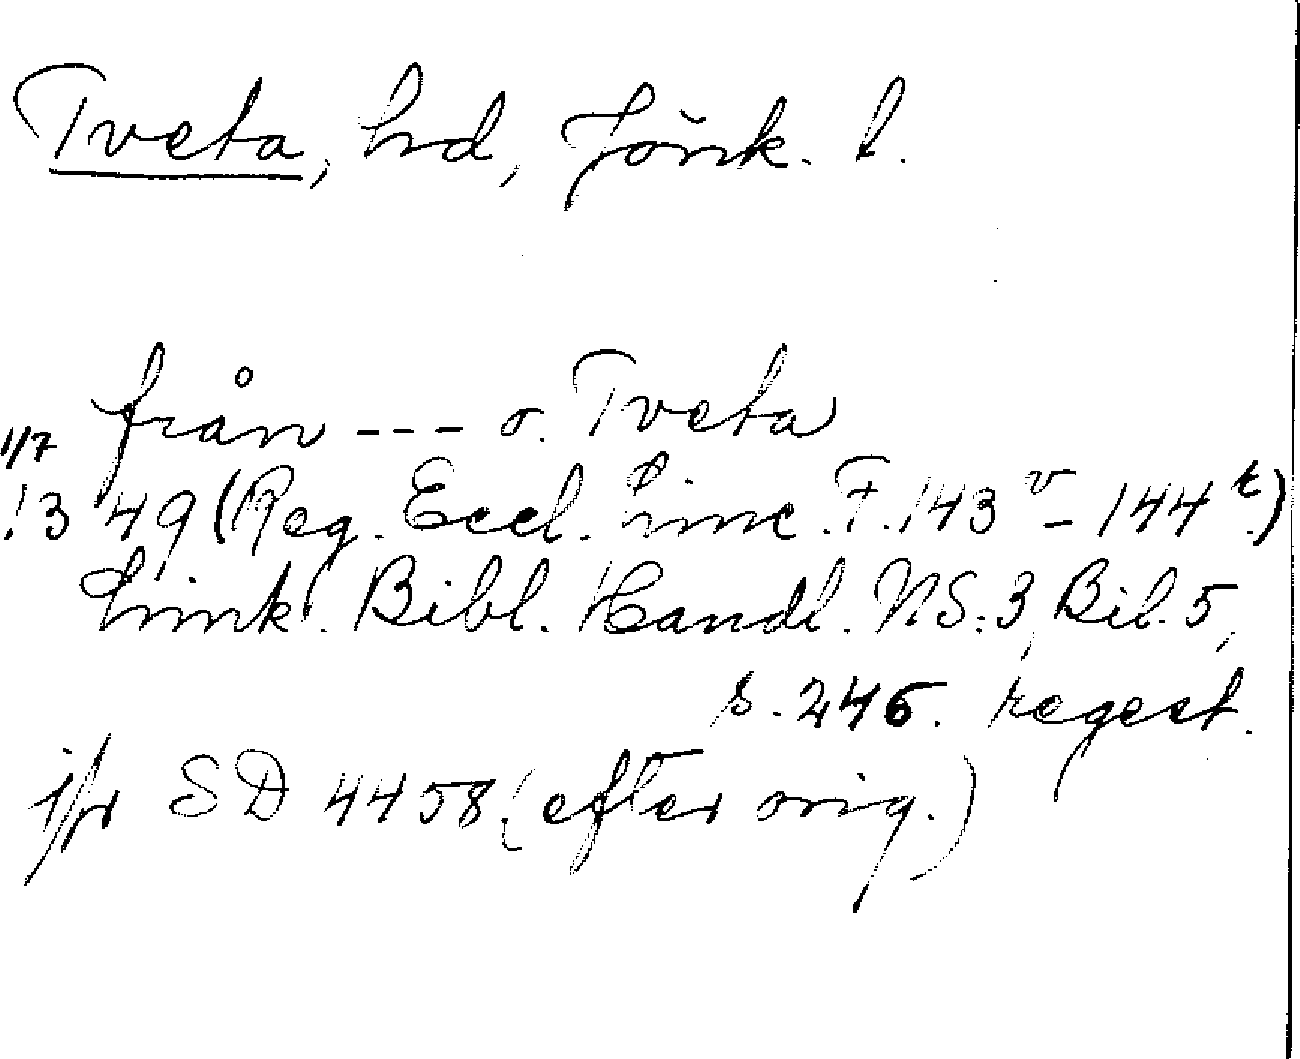 Tveta, hd, Jönk. l.
från --- o. Tveta
1/7
1349 (Reg. Eccl. Linc. F. 143 v - 144 r)
Link. Bibl. Handl. NS:3, Bil. 5,
s. 246. regest.
jfr SD 4458. (efter orig.)